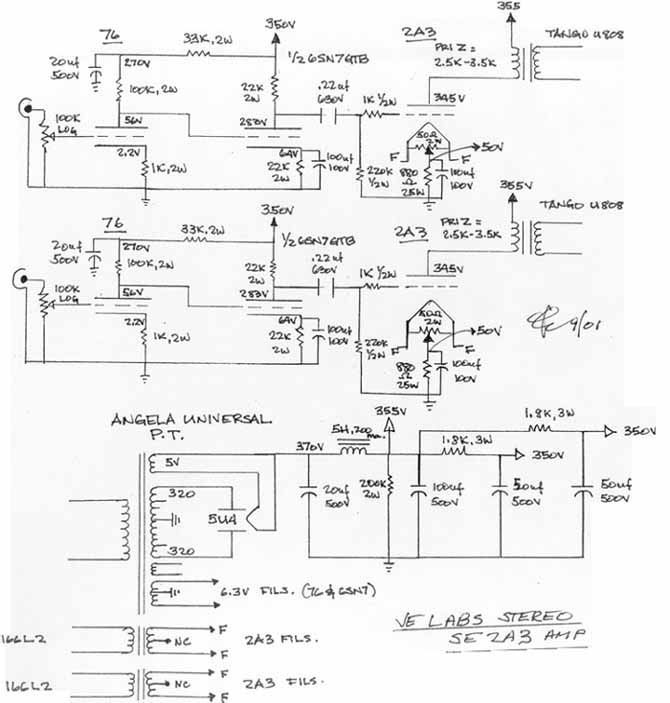 350V
355
76
33K, 2W
2A3
TANGO U808
PRI Z =
2.5K-3.5K
20uf
500V
270V
1/2 6SN7GTB
100K, 2W
22K
2W
.22uf
630V
1K 1/2W
345V
100K
LOG
56V
283V
50Ω
2W
50V
2.2V
64V
F
F
1K, 2W
22K
2W
100uf
100V
220K
1/2W
880
Ω
25W
100uf
100V
355V
350V
76
33K, 2W
2A3
TANGO U808
PRI Z =
2.5K-3.5K
20uf
500V
270V
1/2 6SN7GTB
100K, 2W
22K
2W
.22uf
630V
1K 1/2W
345V
100K
LOG
56V
283V
50Ω
2W
50V
9/01
2.2V
64V
F
F
1K, 2W
22K
2W
100uf
100V
220K
1/2W
880
Ω
25W
100uf
100V
ANGELA UNIVERSAL
P.T.
355V
1.8K, 3W
350V
5H, 200 ma.
370V
1.8K, 3W
350V
5V
320
5U4
20uf
500V
200K
2W
100uf
500V
50uf
500V
50uf
500V
320
6.3V FILS. (76 & 6SN7)
VE LABS STEREO
SE 2A3 AMP
166L2
F
NC
2A3 FILS.
F
166L2
F
NC
2A3 FILS.
F